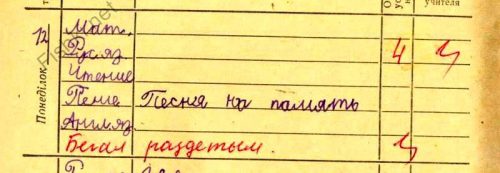 учителя
12
Понеділок
Мат.
Рус. яз. 4
Чтение
Пение Песня на память
Англ. яз.
Бегал раздетым.